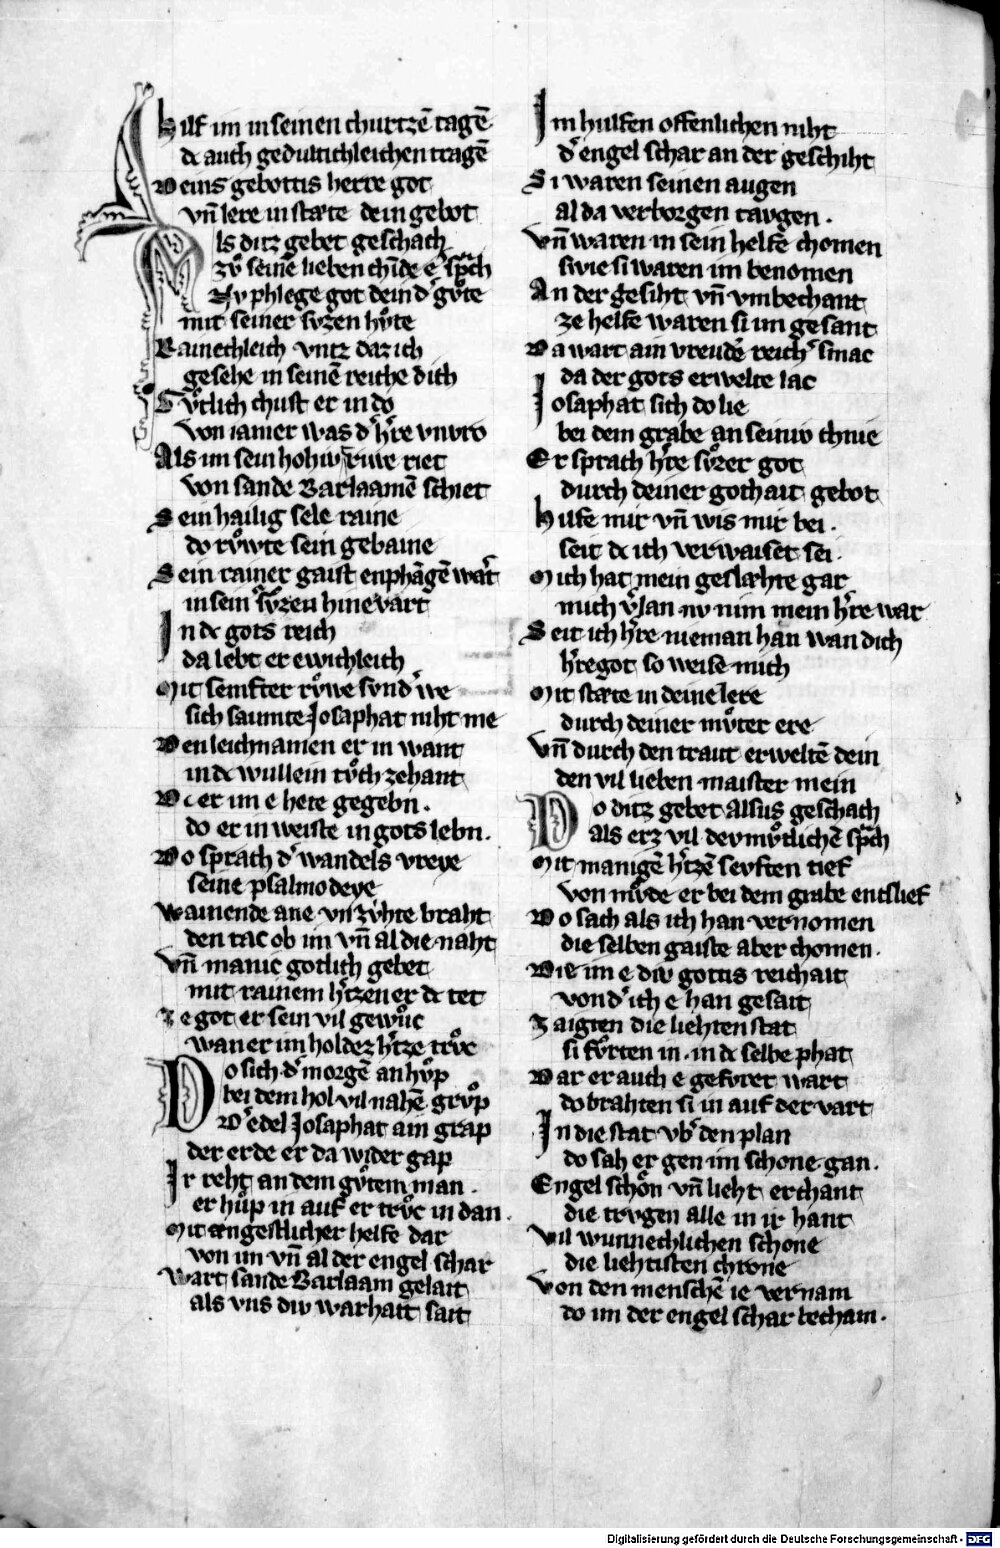 Hilf im in seinen churtzē tagē
dc auch gedultichleichen tragē
Deins gebottis herre got
vñ lere in stæte dein gebot
Als ditz gebet geschach
zv̊ seinē lieben chīde er sp̃ch
Nv phlege got dein d᾽ gv̊te
mit seiner svzen hv̊te
Rainechleich vntz daz ich
gesehe in seinē reiche dich
Gv̊tlich chust er in do
von iamer was d᾽ h᾽re vnvro
Als im sein hohiv riwe riet
von sande Barlaamē schiet
Sein hailig sele raine
do rv̊wte sein gebaine
Sein rainer gaist enphāgē wart
in sein sv̊zeu hinevart
In dc gots reich
da lebt er ewichleich
Mit semfter rv̊we svnd᾽ we
sich saumte Josaphat niht me
Den leichnamen er in want
in dc wullein tv̊ch zehant
Dc er im e hete gegebn.
do er in weiste in gots lebn.
Do sprach d᾽ wandels vreye
seine psalmodeye
Wainende ane vnzvhte braht
den tac ob im vñ al die naht
Vñ manic gotlich gebet
mit rainem h᾽tzen er dc tet
Ze got er sein vil gewůc
wan er im holdez h᾽tze trv̊c
Do sich d᾽ morgē anhv̊p
bei dem hol vil nahē grv̊p
D᾽ edel Josaphat ain grap
der erde er da wider gap
Ir reht an dem gv̊tem man.
er hůp in auf er trv̊c in dan.
Mit engestlicher helfe dar
von im vñ al der engel schar
Wart sande Barlaam gelait
als vns div warhait sait
Im hulfen offenlichen niht
d᾽ engel schar an der geschiht
Si waren seinen augen
al da verborgen tavgen.
Vñ waren in sein helfe chomen
swie si waren im benomen
An der gesiht vñ vmbechant
ze helfe waren si im gesant
Da wart ain vreudē reich᾽ smac
da der gots erwelte lac
Josaphat sich do lie
bei dem grabe an seiniv chnie
Er sprach h᾽re sv̊zer got
durch deiner gothait gebot
Hilfe mir vñ wis mir bei.
seit dc ich verwaiset sei.
Mich hat mein geslæhte gar
mich v᾽lan nv nim mein h᾽re war
Seit ich h᾽re nieman han wan dich
h᾽regot so weise mich
Mit stæte in deine lere
durch deiner mv̊ter ere
Vñ durch den traut erweltē dein
den vil lieben maister mein
Do ditz gebet alsus geschach
als erz vil devmv̊tlichē sp̃ch
Mit manigē h᾽tzē sevften tief
von mv̊de er bei dem grabe entslief
Do sach als ich han vernomen
die selben gaiste aber chomen.
Die im e div gottis reichait
von d᾽ ich e han gesait
Zaigten die liehten stat
si fv̊rten in. in dc selbe phat
Dar er auch e gefvret wart
do brahten si in auf der vart
In die stat vb᾽ den plan
do sah er gen im schone gan.
Engel schön vñ lieht erchant
die trvgen alle in ir hant
Vil wunnechlichen schone
die liehtisten chrone
Von den menschē ie vernam
do im der engel schar becham.
Digitalisierung gefördert durch die Deutsche Forschungsgemeinschaft - DFG